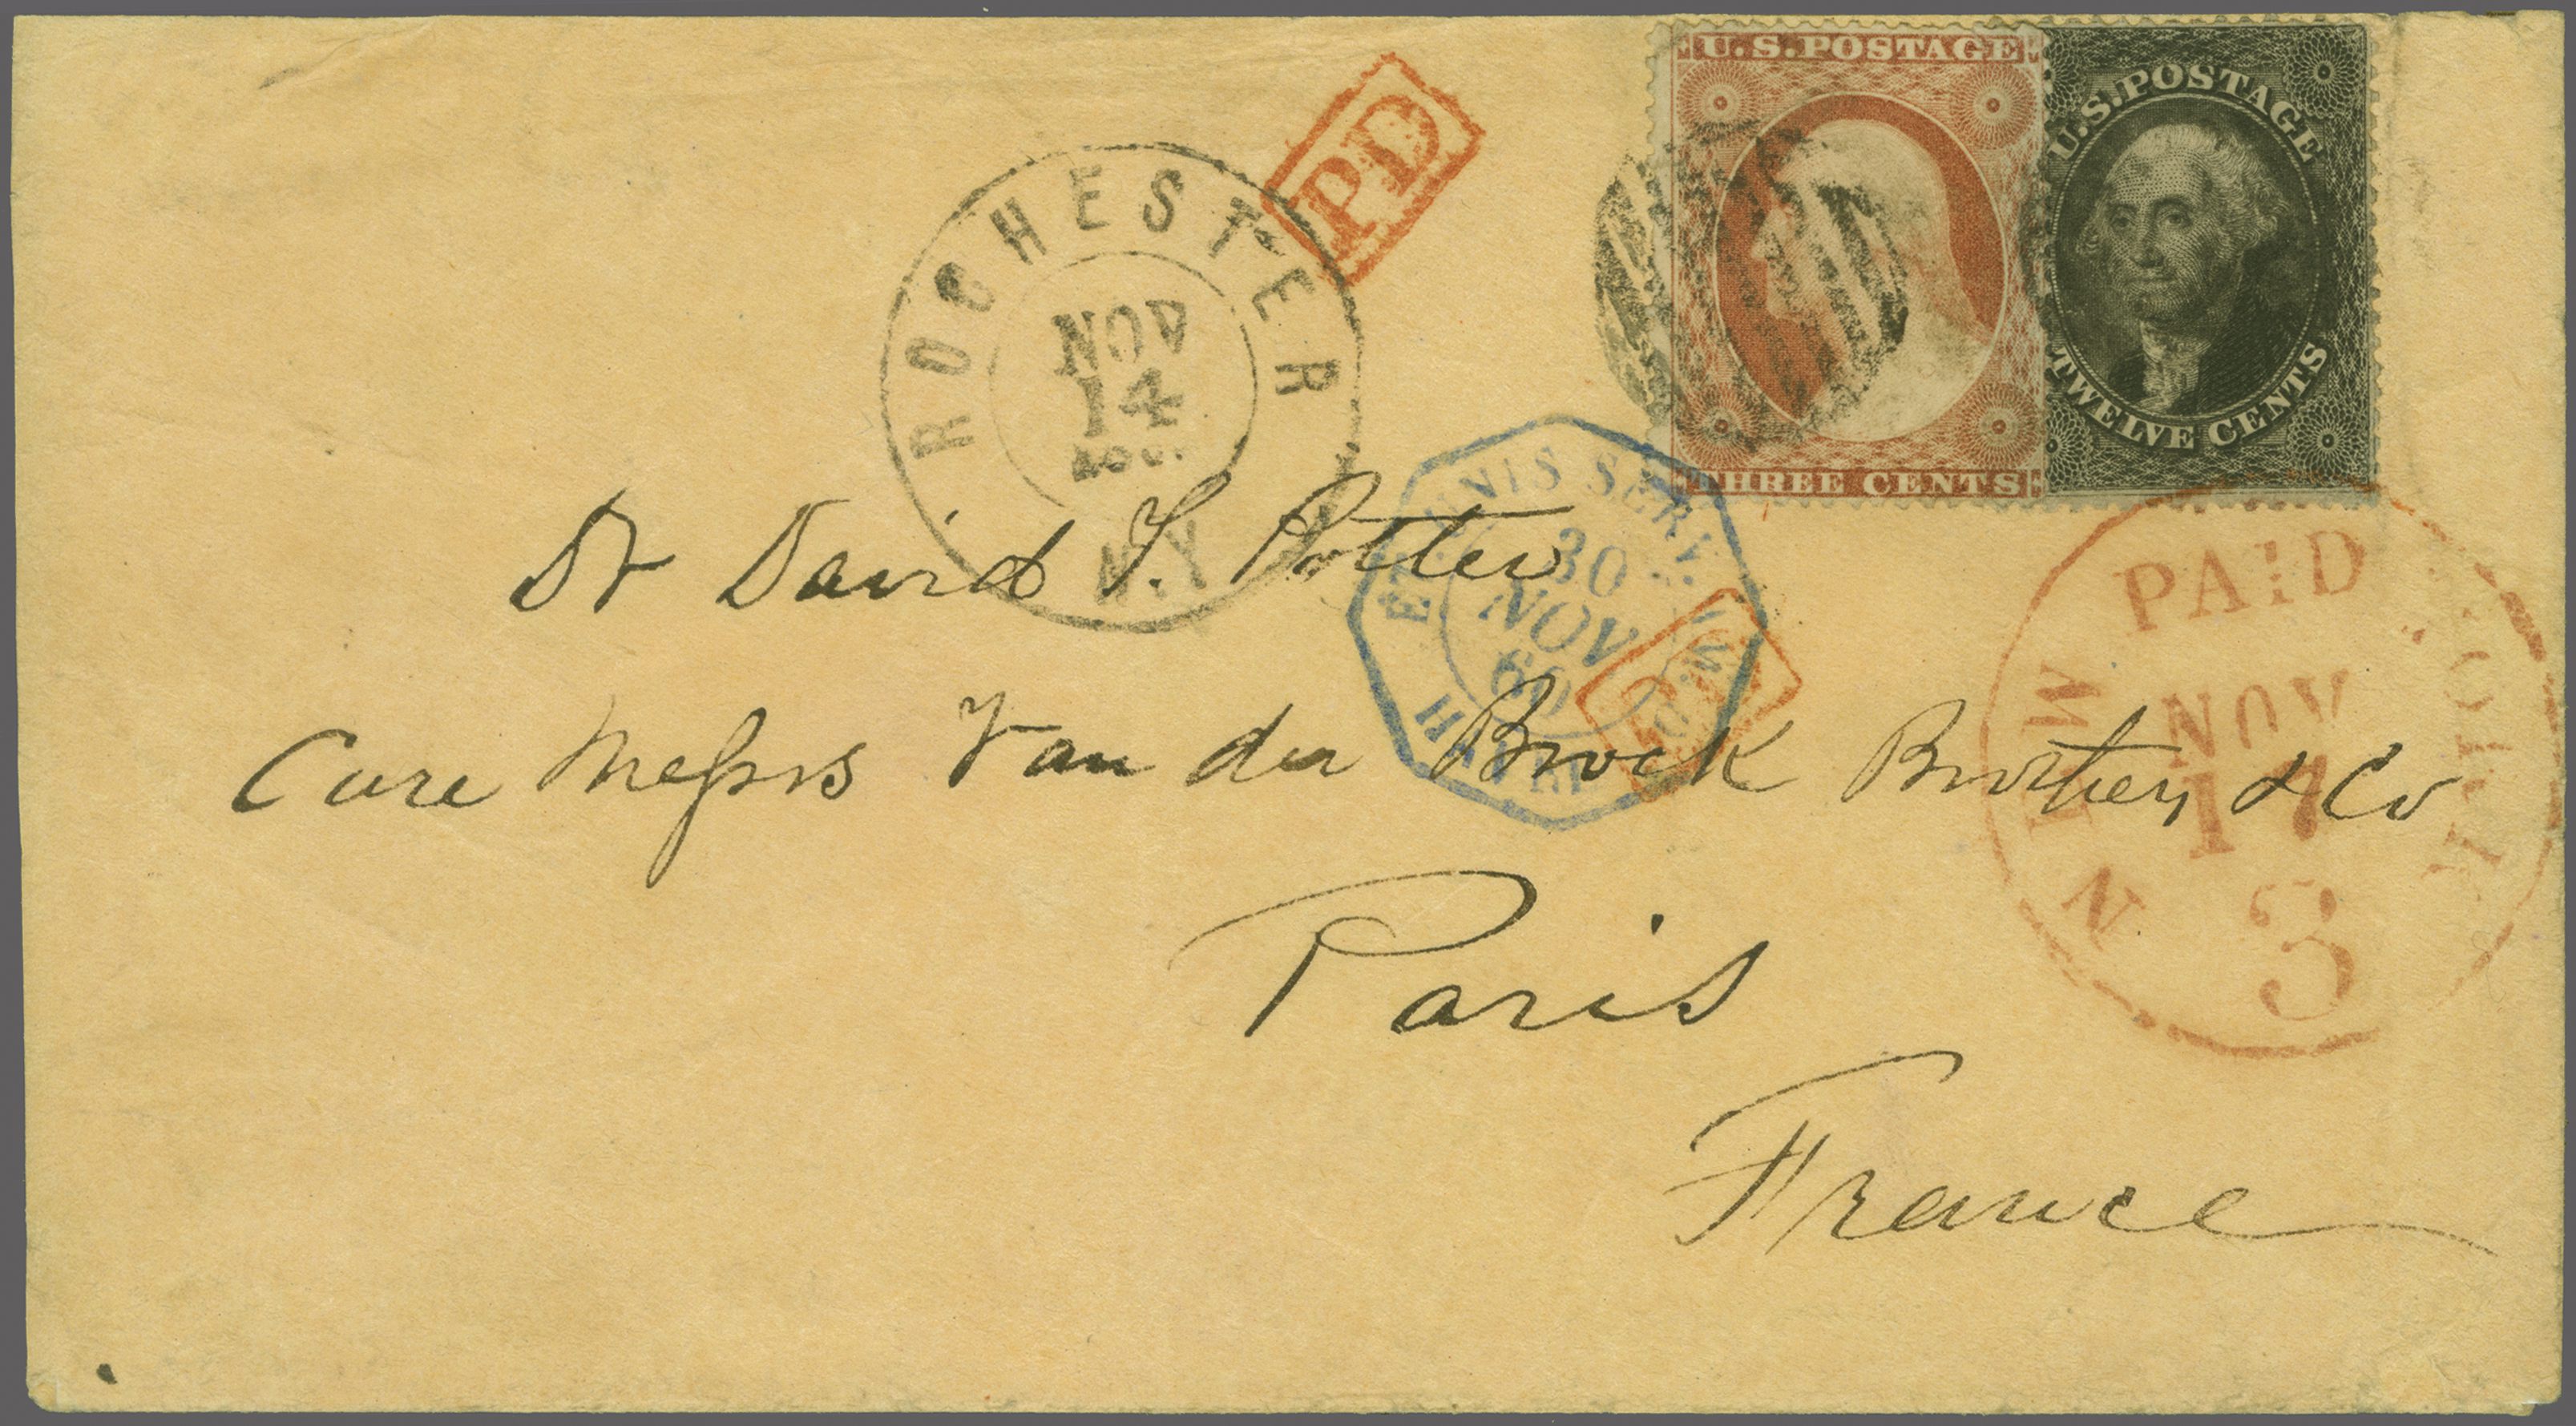 U.S.POSTAGE
THREE CENTS
U.S.POSTAGE
TWELVE CENTS
PD
ROCHESTER
NOV
14
N.Y
SERV.
30
NOV
60
PAID
NEW YORK
NOV
17
3
Dr David T. Potter
Care Messrs Van der Brock Brothers & Co
Paris
France